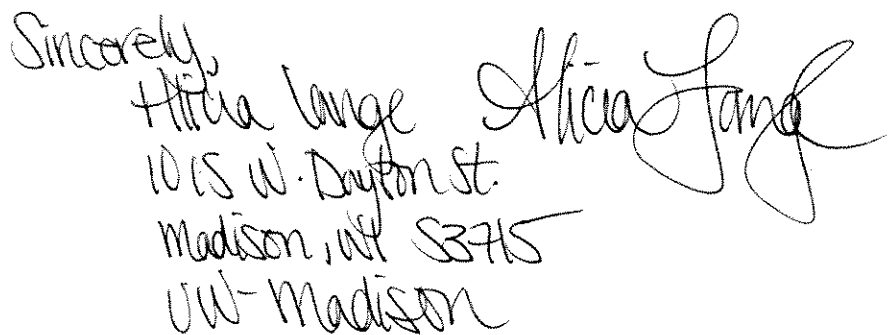 Sincerely,
Alicia Lange Alicia Lange
1015 W. Dayton St.
Madison, WI 53715
UW-Madison